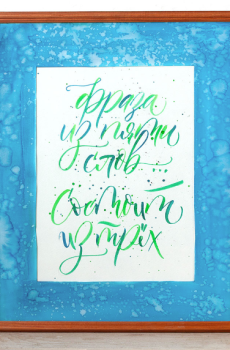 фраза
из пяти
слов...
Состоит
из трёх